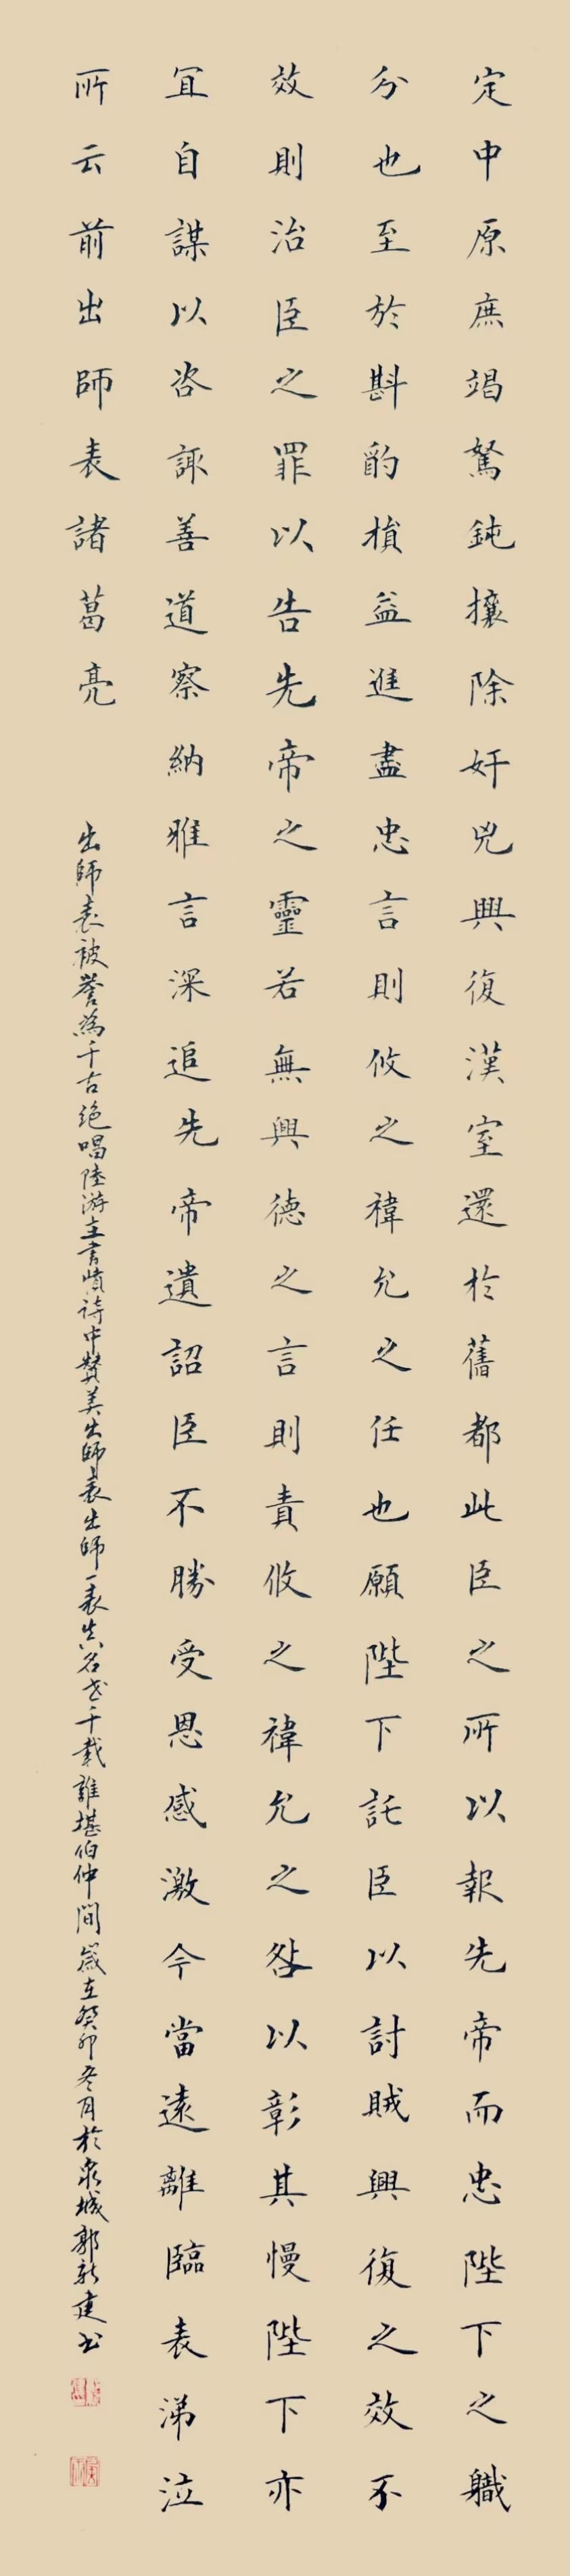 定中原庶竭駑鈍攘除奸兇興復漢室還於舊都此臣之所以報先帝而忠陛下之職
分也至於斟酌損益進盡忠言則攸之禕允之任也願陛下託臣以討賊興復之效不
效則治臣之罪以告先帝之靈若無興德之言則責攸之禕允之咎以彰其慢陛下亦
宜自謀以咨諏善道察納雅言深追先帝遺詔臣不勝受恩感激今當遠離臨表涕泣
所云前出師表諸葛亮
出師表被譽為千古絕唱陸游在書憤詩中贊美出師表出師一表真名世千載誰堪伯仲間歲在癸卯冬月於泉城郭新建書